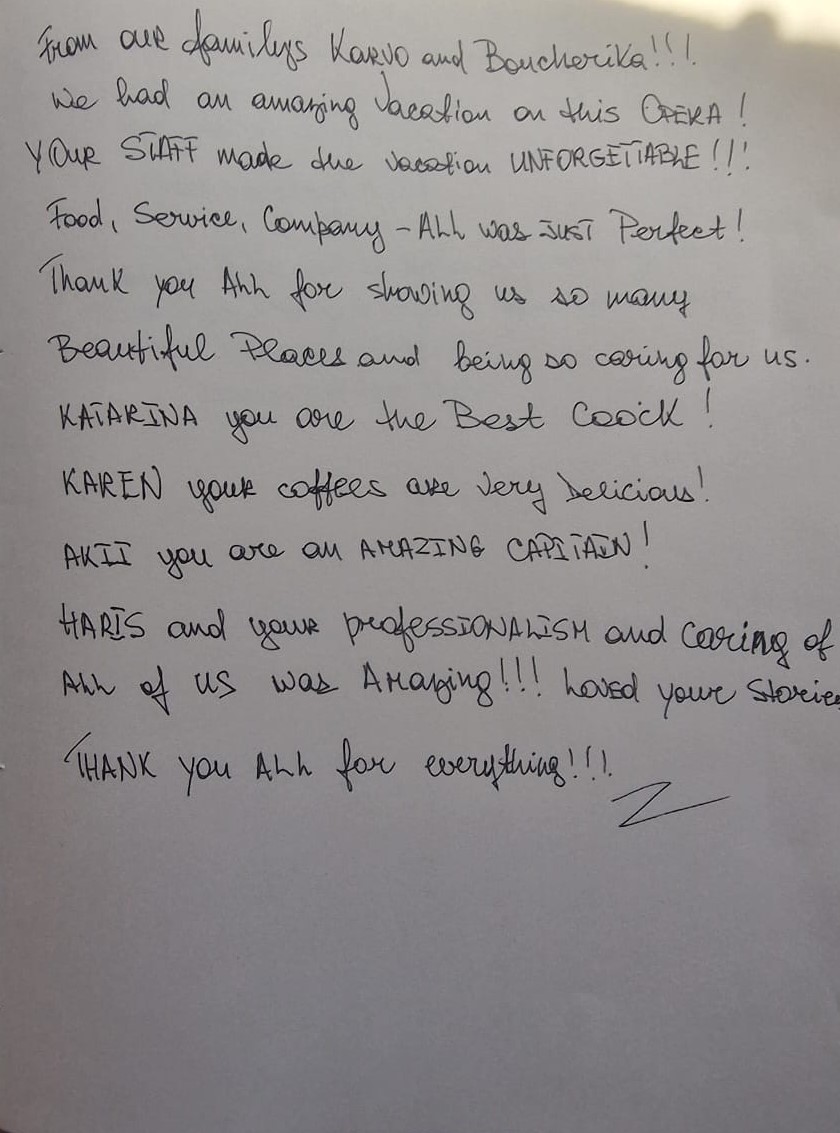 From our familys Karvo and Boucherika!!!
We had an amazing Vacation on this OPERA!
YOUR STAFF made the vacation UNFORGETTABLE!!!
Food, Service, Company - All was JUST Perfect!
Thank you All for showing us so many
Beautiful Places and being so caring for us.
KATARINA you are the Best Coock!
KAREN your coffees are very Delicious!
AKII you are an AMAZING CAPITAIN!
HARIS and your professIONALISM and caring of
All of us was AMazing!!! Loved your Stories
THANK you All for everything!!!